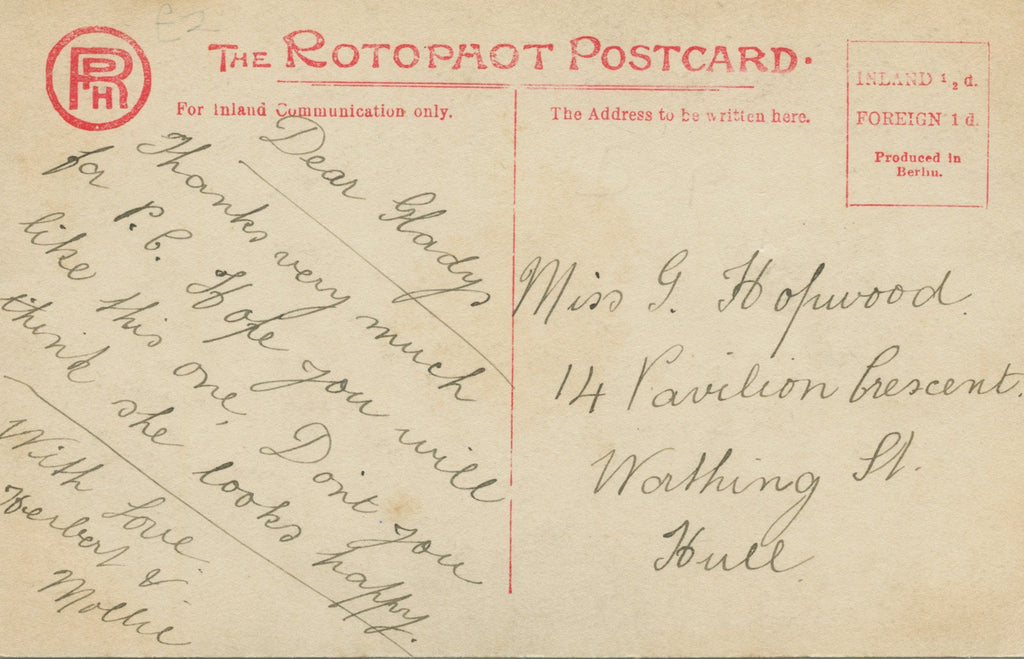 £2
RPH
THE ROTOPHOT POSTCARD.
For Inland Communication only.
The Address to be written here.
INLAND ½ d.
FOREIGN 1 d.
Produced in
Berlin.
Dear Gladys
Thanks very much
for P.C. Hope you will
like this one, Dont you
think she looks happy.
With love
Herbert &
Mollie
Miss G. Hopwood
14 Pavilion Crescent.
Worthing St.
Hull